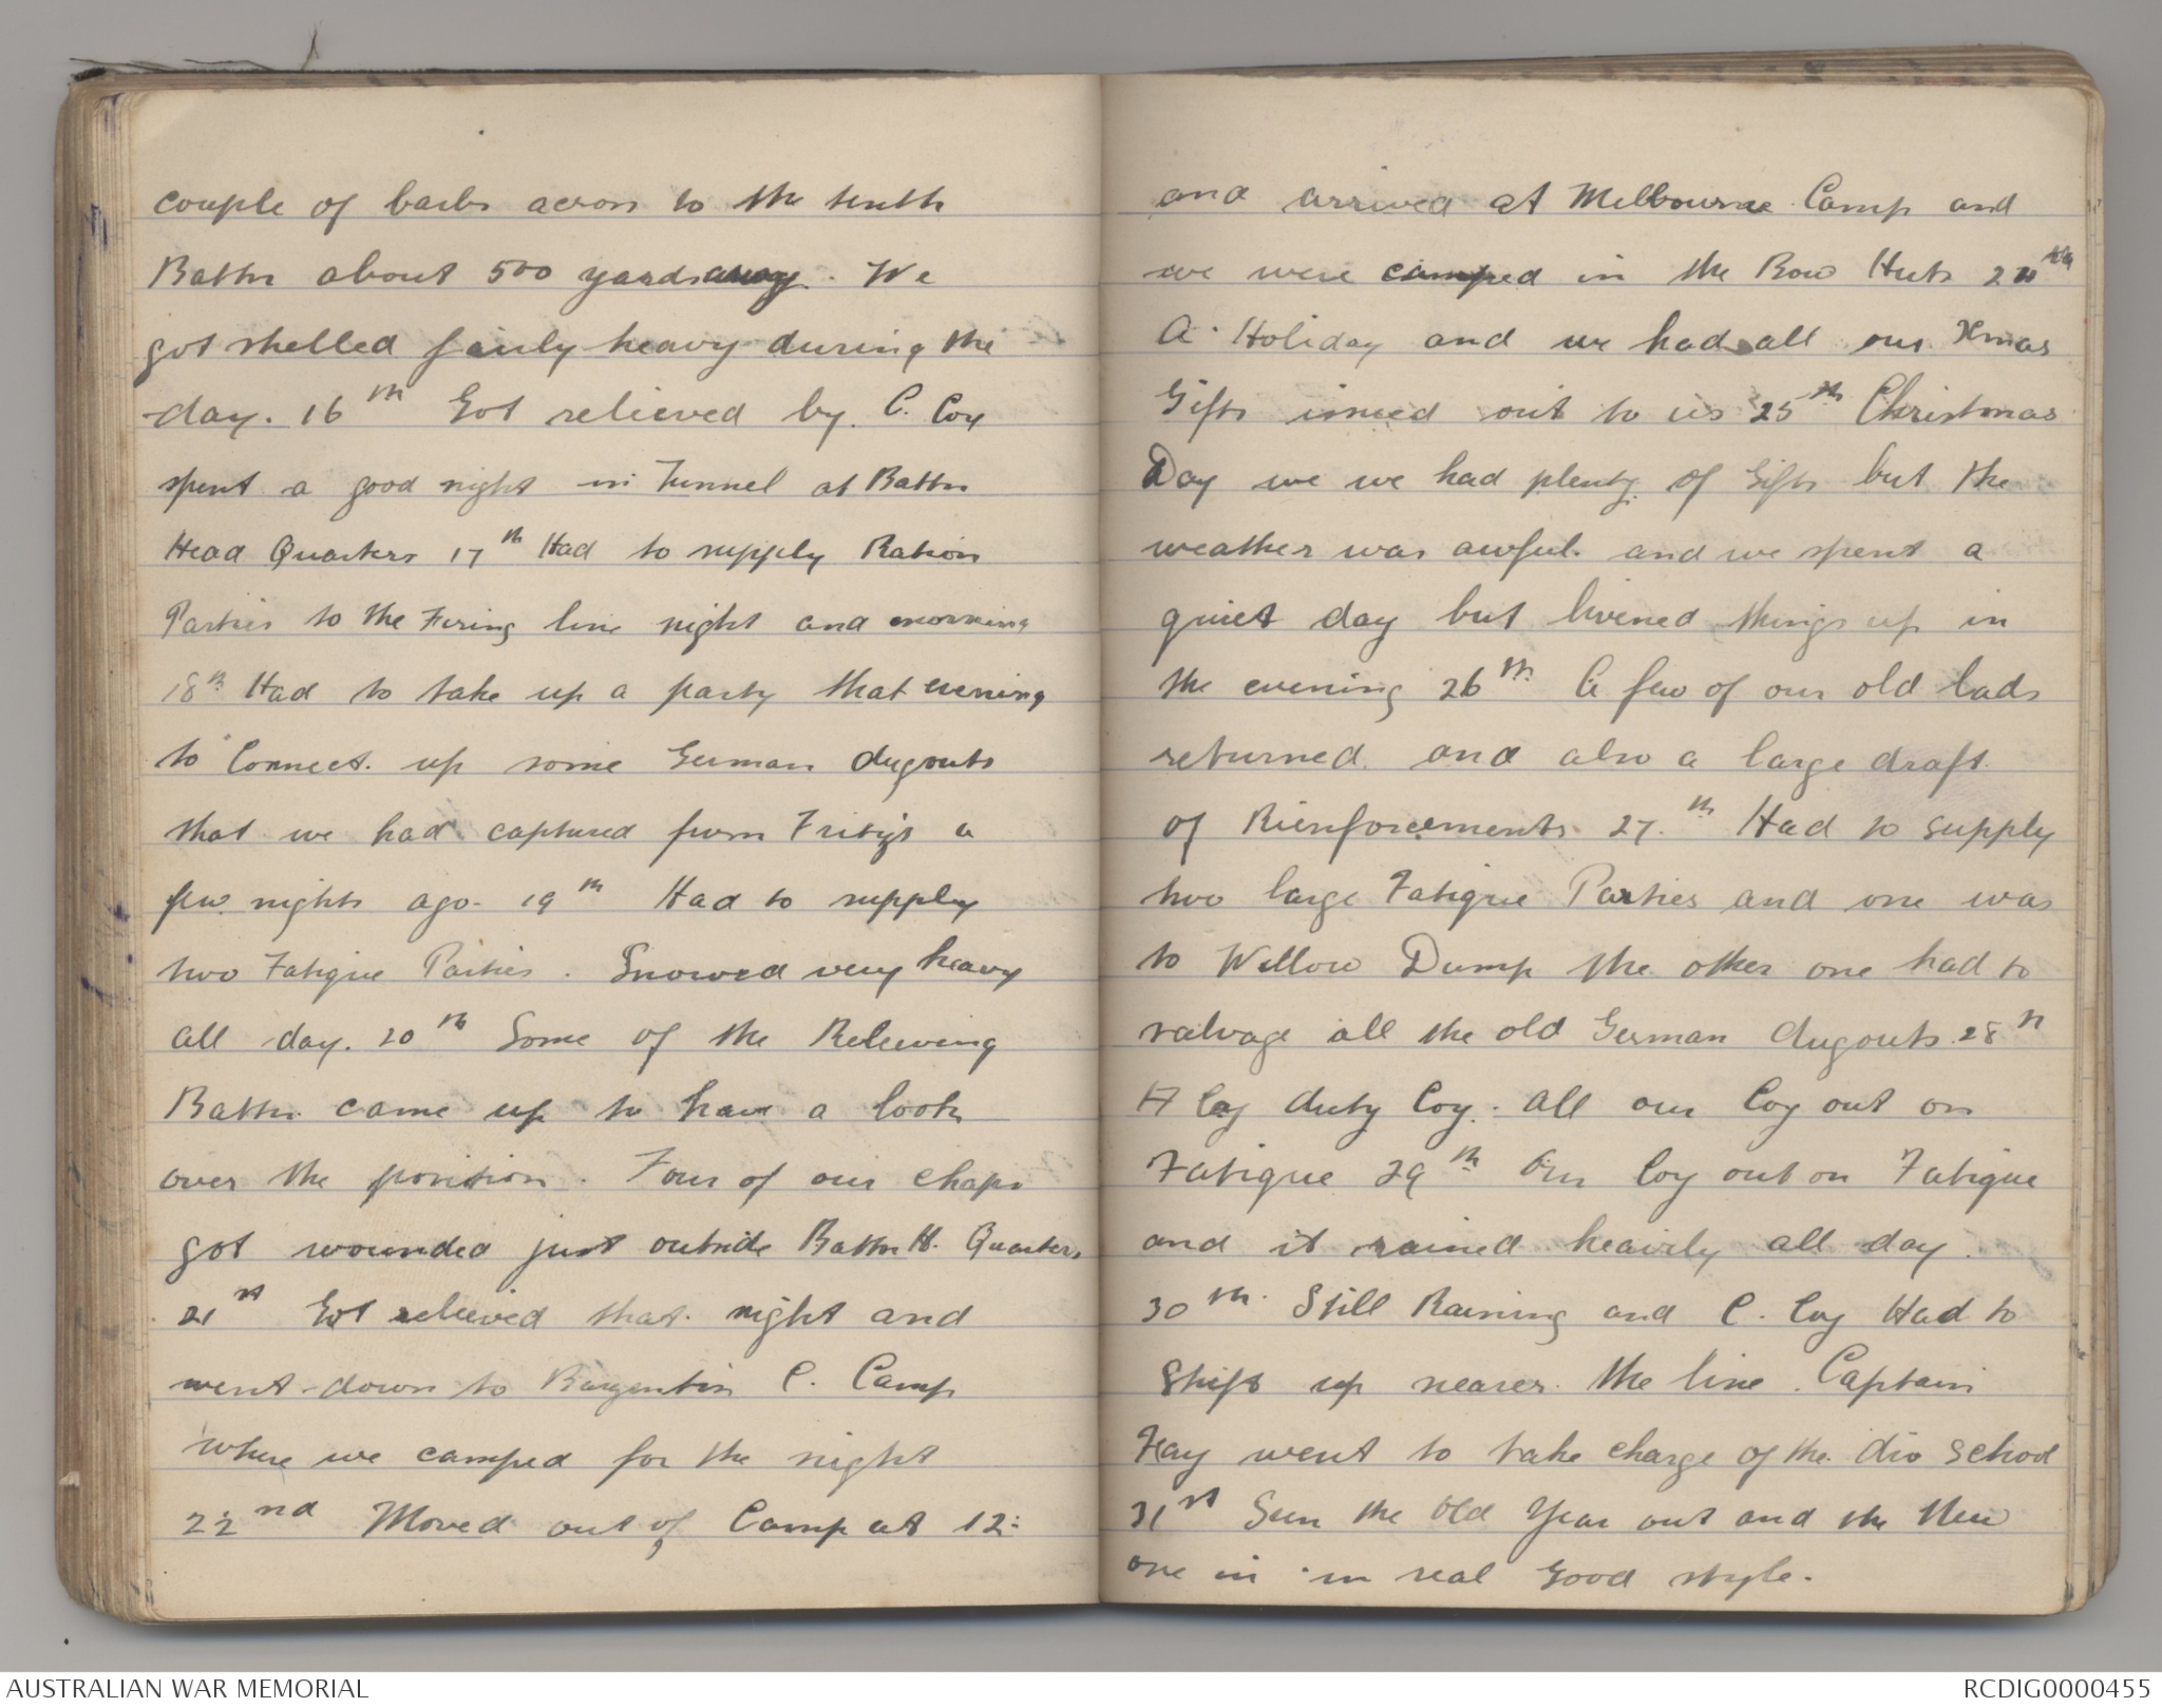 couple of barbs across to the tenth
Battn about 500 yards away. We
got shelled fairly heavy during the
day. 16th Got relieved by C. Coy
spent a good night in Tunnel at Battn
Head Quarters 17th Had to supply Ration
Parties to the Firing line night and morning
18th Had to take up a party that evening
to Connect. up some German dugouts
that we had captured from Fritz's a
few nights ago. 19th Had to supply
two Fatigue Parties. Snowed very heavy
all day. 20th Some of the Relieving
Battn. came up to have a look
over the position. Four of our chaps
got wounded just outside Battn H. Quarters
21st Got relieved that night and
went down to C. Camp
where we camped for the night
22nd Moved out of Camp at 12.
and arrived at Melbourne Camp and
we were camped in the Bow Huts 24th
A Holiday and we had all our Xmas
Gifts issued out to us 25th Christmas
Day we we had plenty of Gifts but the
weather was awful. and we spent a
quiet day but livened things up in
the evening 26th A few of our old lads
returned and also a large draft
of Rienforcements. 27.th Had to supply
two large Fatigue Parties and one was
to Willow Dump the other one had to
salvage all the old German dugouts. 28th
Coy duty Coy. all our Coy out on
Fatigue 29th Our Coy out on Fatigue
and it rained heavily all day.
30th. Still Raining and C. Coy Had to
Shift up nearer the line. Captain
Hay went to take charge of the div School
31st Seen the Old Year out and the New
one in in real Good style.
AUSTRALIAN WAR MEMORIAL
RCDIG0000455